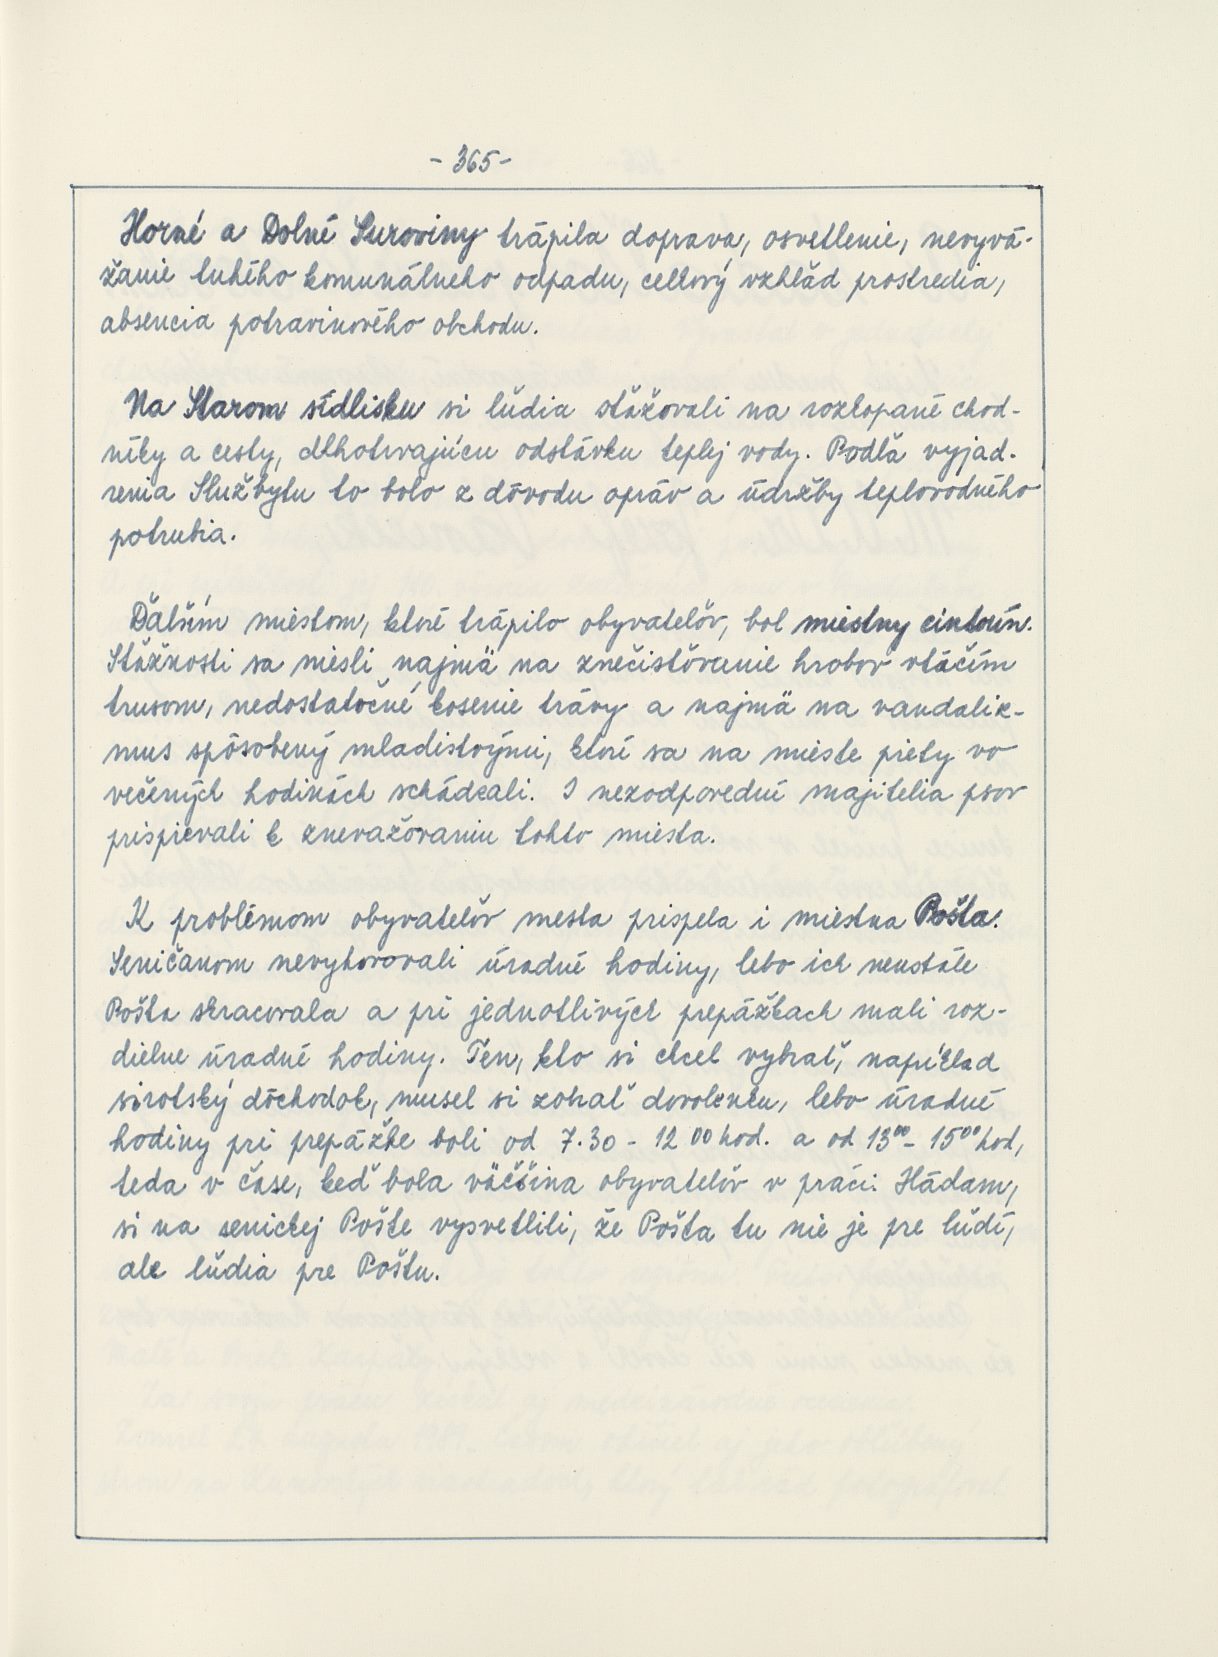 - 365 -
Horné a Dolné Suroviny trápila doprava, osvetlenie, nevyvá-
žanie tuhého komunálneho odpadu, celkový vzhľad prostredia,
absencia potravinového obchodu.
Na Starom sídlisku si ľudia sťažovali na rozkopané chod-
níky a cesty, dlhotrvajúcu odstávku teplej vody. Podľa vyjad-
renia Službytu to bolo z dôvodu opráv a údržby teplovodného
potrubia.
Ďalším miestom, ktoré trápilo obyvateľov, bol miestny cintorín.
Sťažnosti sa niesli najmä na znečisťovanie hrobov vtáčím
trusom, nedostatočné kosenie trávy a najmä na vandaliz-
mus spôsobený mladistvými, ktorí sa na mieste piety vo
večerných hodinách schádzali. I nezodpovední majitelia psov
prispievali k znevažovaniu tohto miesta.
K problémom obyvateľov mesta prispela i miestna Pošta.
Seničanom nevyhovovali úradné hodiny, lebo ich neustále
Pošta skracovala a pri jednotlivých prepážkach mali roz-
dielne úradné hodiny. Ten, kto si chcel vybrať, napríklad
sirotský dôchodok, musel si zobrať dovolenku, lebo úradné
hodiny pri prepážke boli od 7.30 - 12 00 hod. a od 13 00 - 15 00 hod,
teda v čase, keď bola väčšina obyvateľov v práci. Hádam,
si na senickej Pošte vysvetlili, že Pošta tu nie je pre ľudí,
ale ľudia pre Poštu.